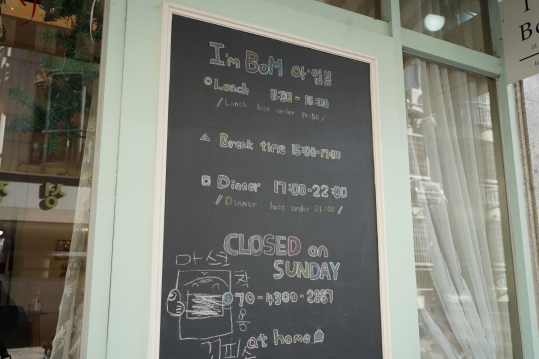 I'm BoM 아'임봄
Lunch 11:30 - 15:00
/ Lunch last order 14:30 /
△ Break time 15:00-17:00
□ Dinner 17:00-22:00
/ Dinner last order 21:00 /
CLOSED on
SUNDAY
070-4300-2857
마스크
착
용
at home